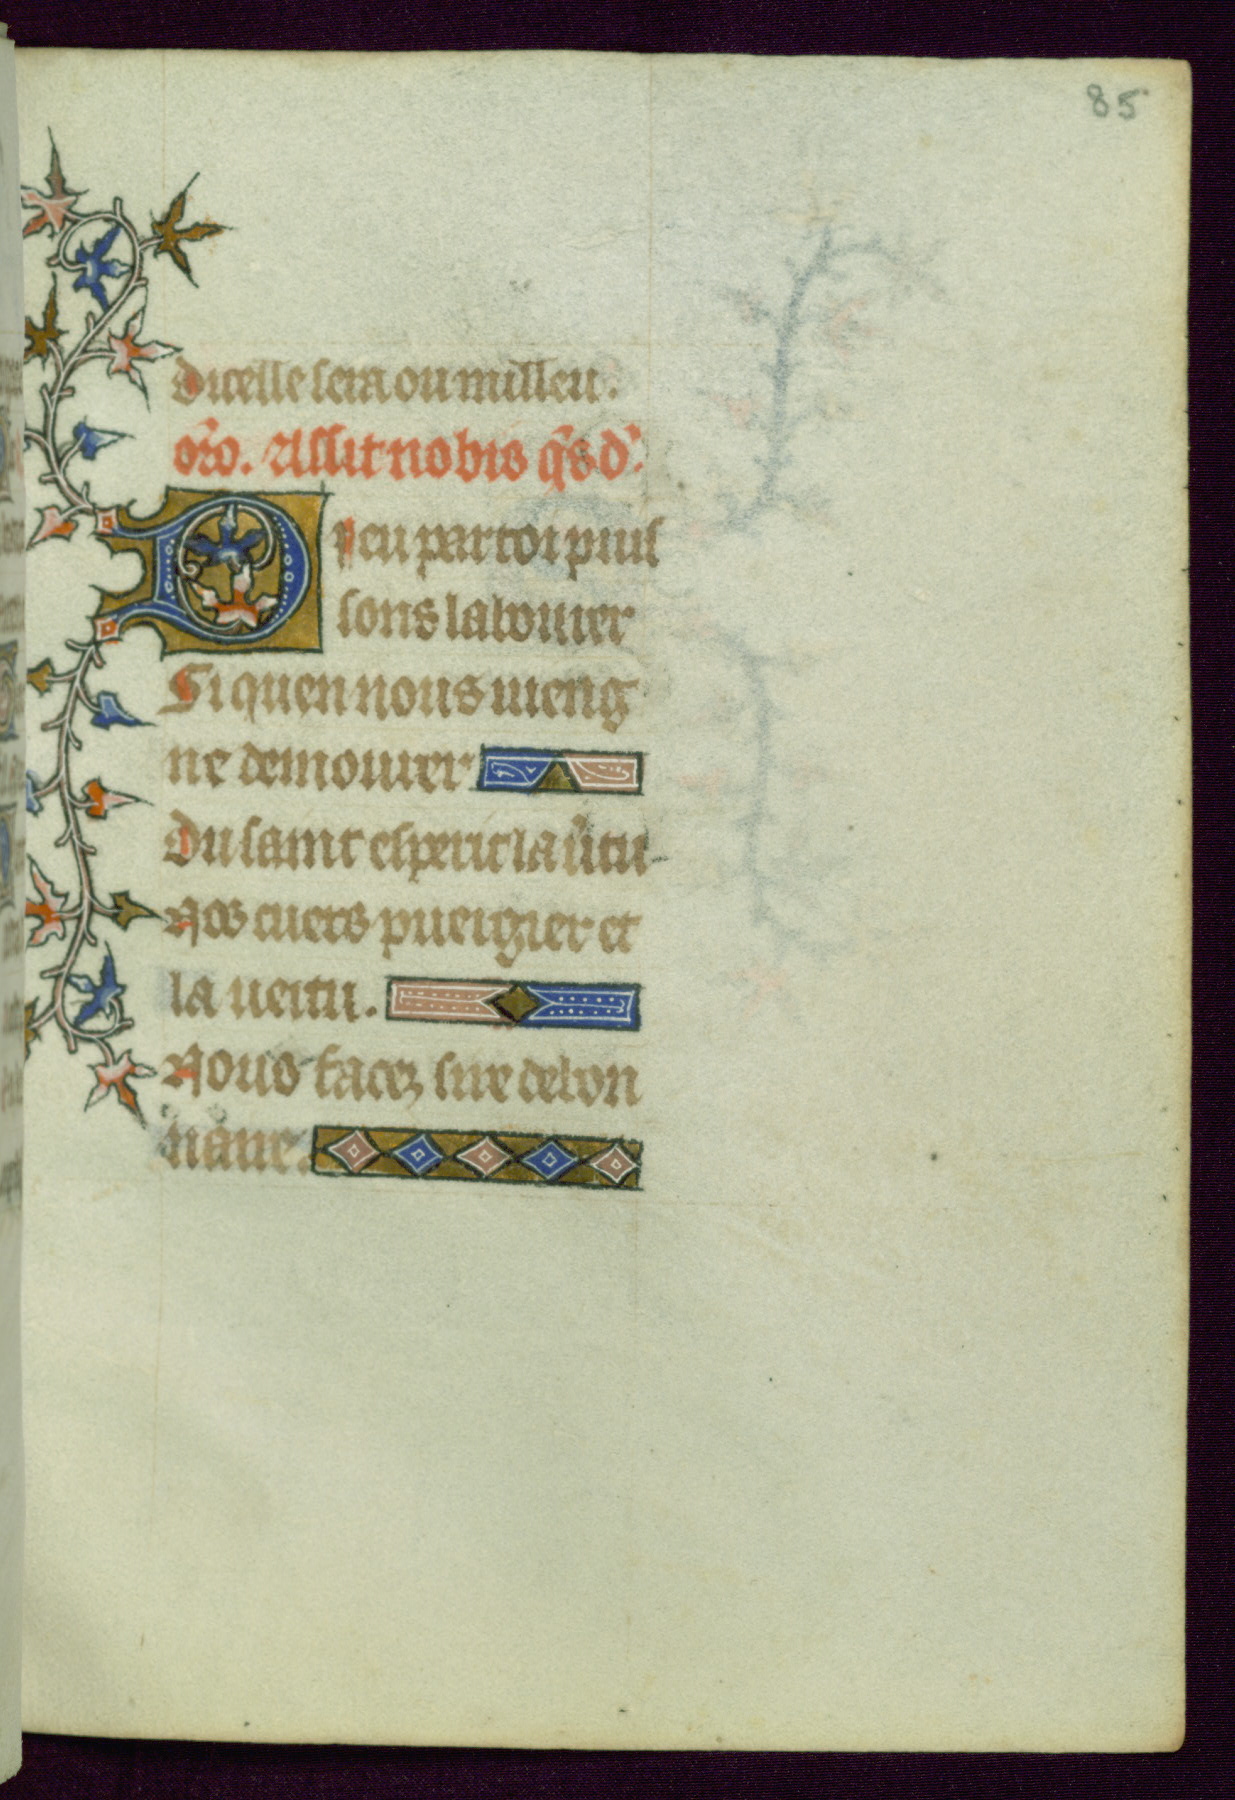 85
Dicelle sera ou milleu.
or̃o. Assit nobis q̃s d̃.
Dieu par toi puis
sons labourer
Si quen nous viengne
ne demourer
Du saint esperit la v̾tu
Nos cuers pueigier et
la vertu.
Nous facez sire de bon
naue.